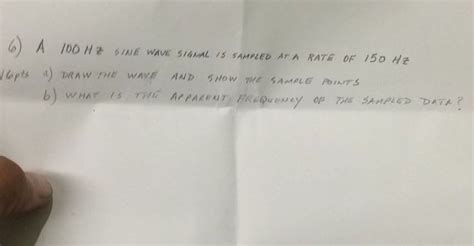 6) A 100 HZ SINE WAVE SIGNAL IS SAMPLED AT A RATE OF 150 HZ
16pts a) DRAW THE WAVE AND SHOW THE SAMPLE POINTS
b) WHAT IS THE APPARENT FREQUENCY OF THE SAMPLED DATA?